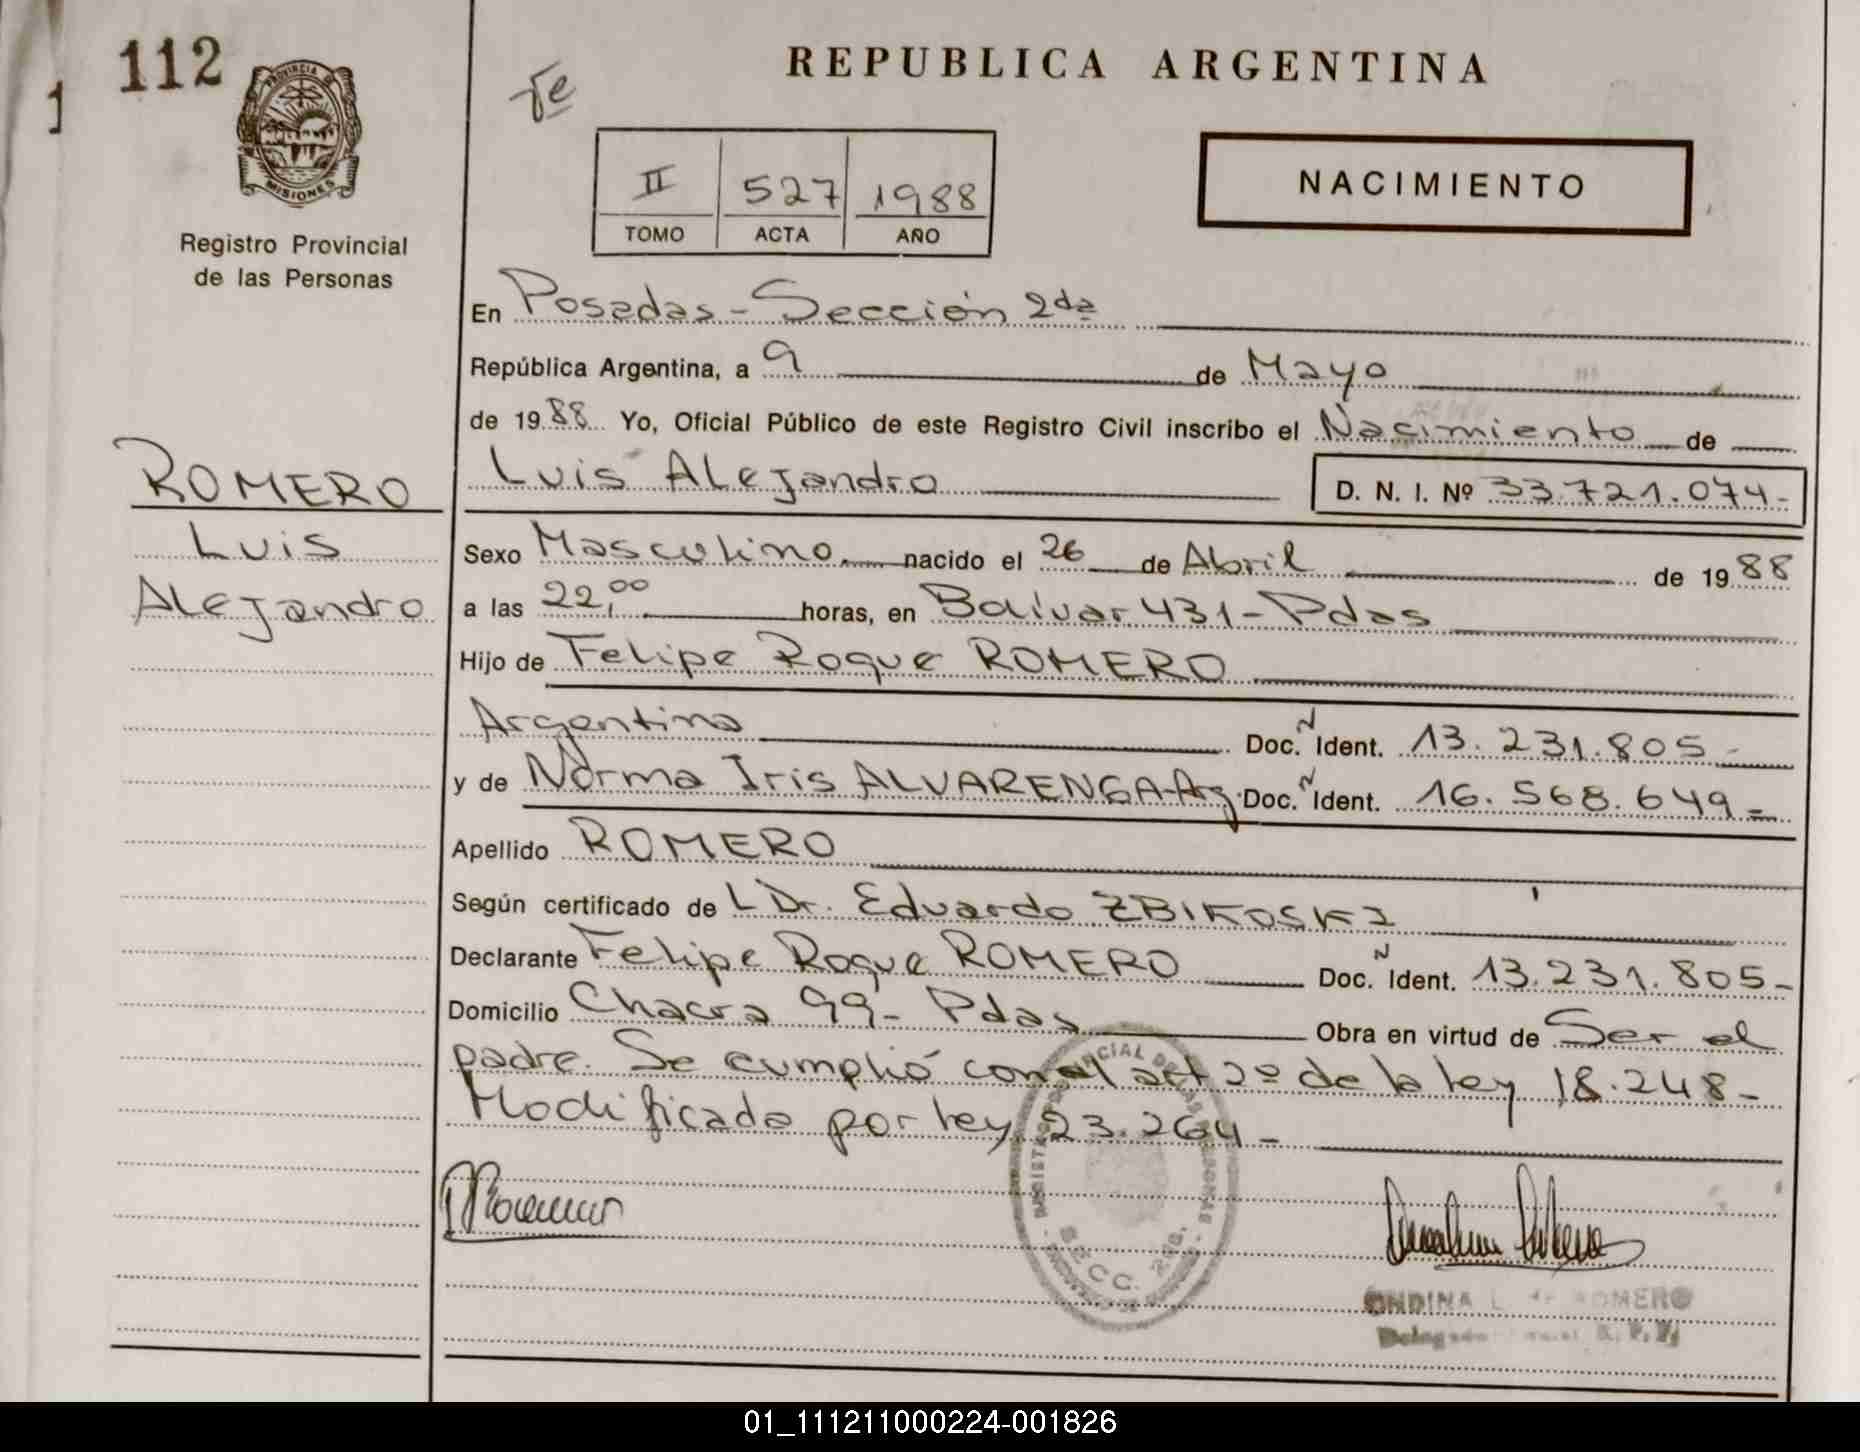 112
1
PROVINCIA DE
MISIONES
Registro Provincial
de las Personas
REPUBLICA ARGENTINA
II 527 1988
TOMO ACTA AÑO
NACIMIENTO
En Posadas - Sección 2da
República Argentina, a 9 de Mayo
de 1988 Yo, Oficial Público de este Registro Civil inscribo el Nacimiento de
Luis Alejandro D. N. I. Nº 33.721.074-
ROMERO
Luis
Alejandro
Sexo Masculino nacido el 26 de Abril de 1988
a las 22,00 horas, en Bolívar 431 - Pdas
Hijo de Felipe Roque ROMERO
Argentina Doc. N Ident. 13.231.805-
y de Norma Iris ALVARENGA-Arg. Doc. N Ident. 16.568.649=
Apellido ROMERO
Según certificado de L Dr. Eduardo ZBIKOSKI
Declarante Felipe Roque ROMERO Doc. N Ident. 13.231.805-
Domicilio Chacra 99- Pdas Obra en virtud de Ser el
padre. Se cumplió con el art 2º de la ley 18.248-
Modificada por ley 23.264-
SECC. 2
ONDINA L. ROMERO
01_111211000224-001826